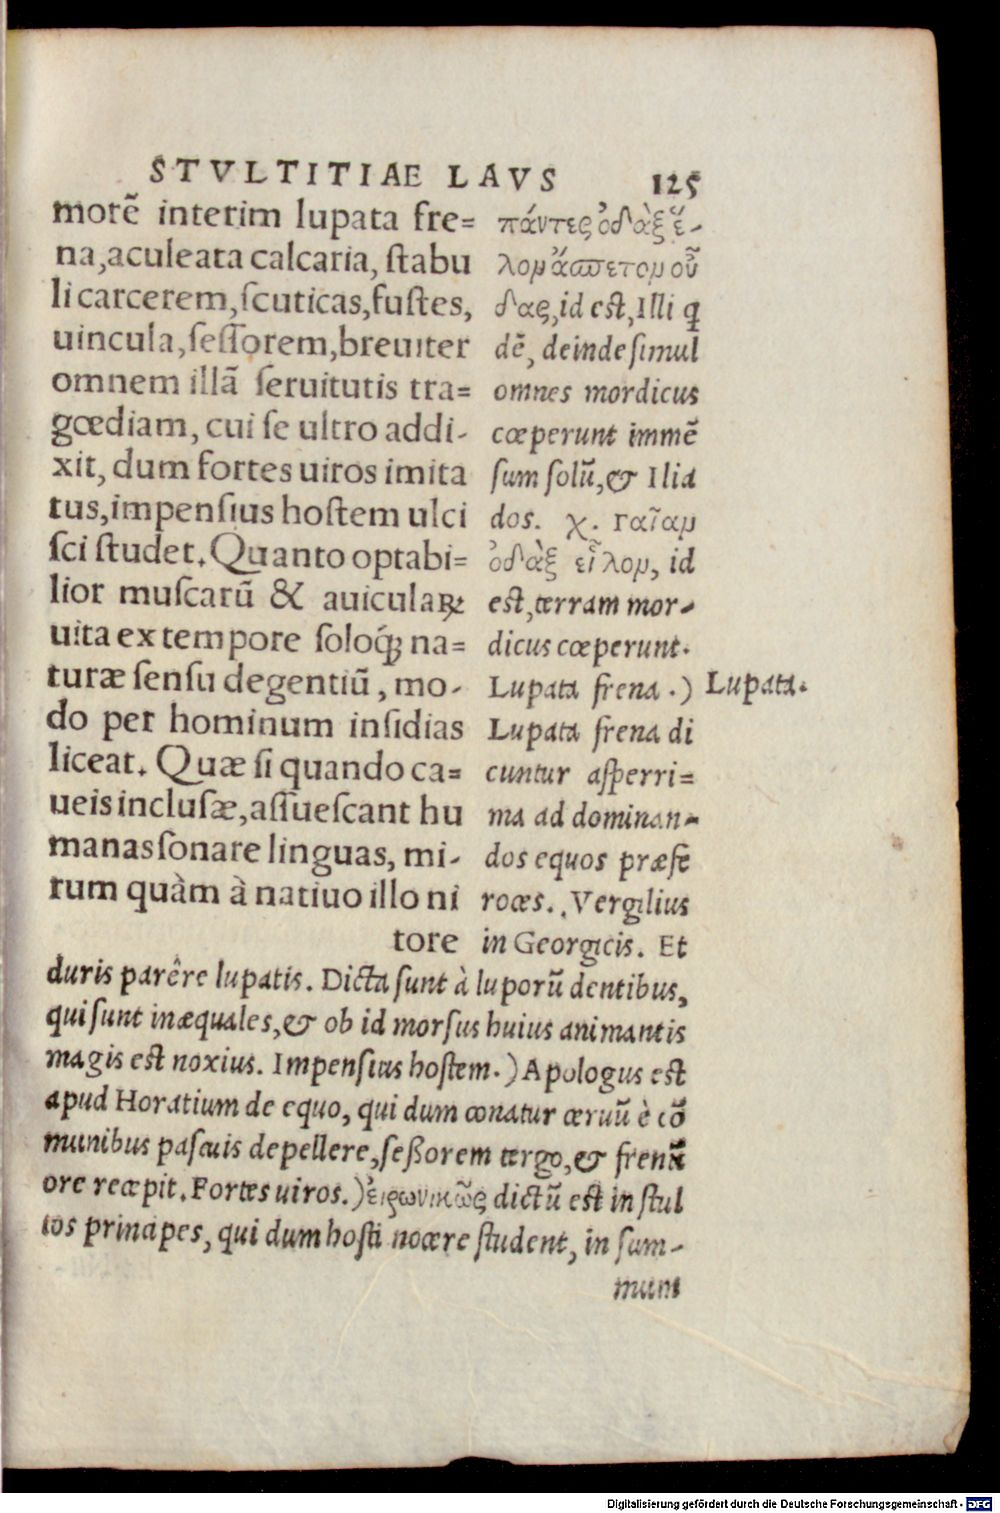 STVLTITIAE LAVS 125
morẽ interim lupata fre=
na,aculeata calcaria, ſtabu
li carcerem,ſcuticas,fuſtes,
uincula,ſeſſorem,breuiter
omnem illã ſeruitutis tra=
gœdiam, cui ſe ultro addi-
xit, dum fortes uiros imita
tus,impenſius hoſtem ulci
ſci ſtudet. Quanto optabi=
lior muſcarũ & auiculaꝝ
uita ex tempore ſoloq́ꝫ na=
turæ ſenſu degentiũ, mo-
do per hominum inſidias
liceat. Quæ ſi quando ca=
ueis incluſæ,aſſueſcant hu
manas ſonare linguas, mi-
rum quàm à natiuo illo ni
tore
πάντες ὀδὰξ ἕ-
λον ἄσπετον οὖ
δας,id eſt,Illi ꝗ
dẽ, deinde ſimul
omnes mordicus
cœperunt immẽ
ſum ſolũ,& Ilia
dos. χ. γαῖαν
ὀδὰξ εἷλον, id
eſt,terram mor-
dicus cœperunt.
Lupata frena .)
Lupata frena di
cuntur aſperri=
ma ad dominan-
dos equos præfe
roces. Vergilius
in Georgicis. Et
Lupata.
duris parêre lupatis. Dicta ſunt à luporũ dentibus,
qui ſunt inæquales,& ob id morſus huius animantis
magis eſt noxius. Impenſius hoſtem.) Apologus eſt
apud Horatium de equo, qui dum conatur ceruũ è cõ
munibus paſcuis depellere,ſeßorem tergo,& frenũ
ore recepit. Fortes uiros.) εἰρωνικῶς dictũ eſt in ſtul
tos principes, qui dum hoſti nocere ſtudent, in ſum-
mum
Digitalisierung gefördert durch die Deutsche Forschungsgemeinschaft - DFG